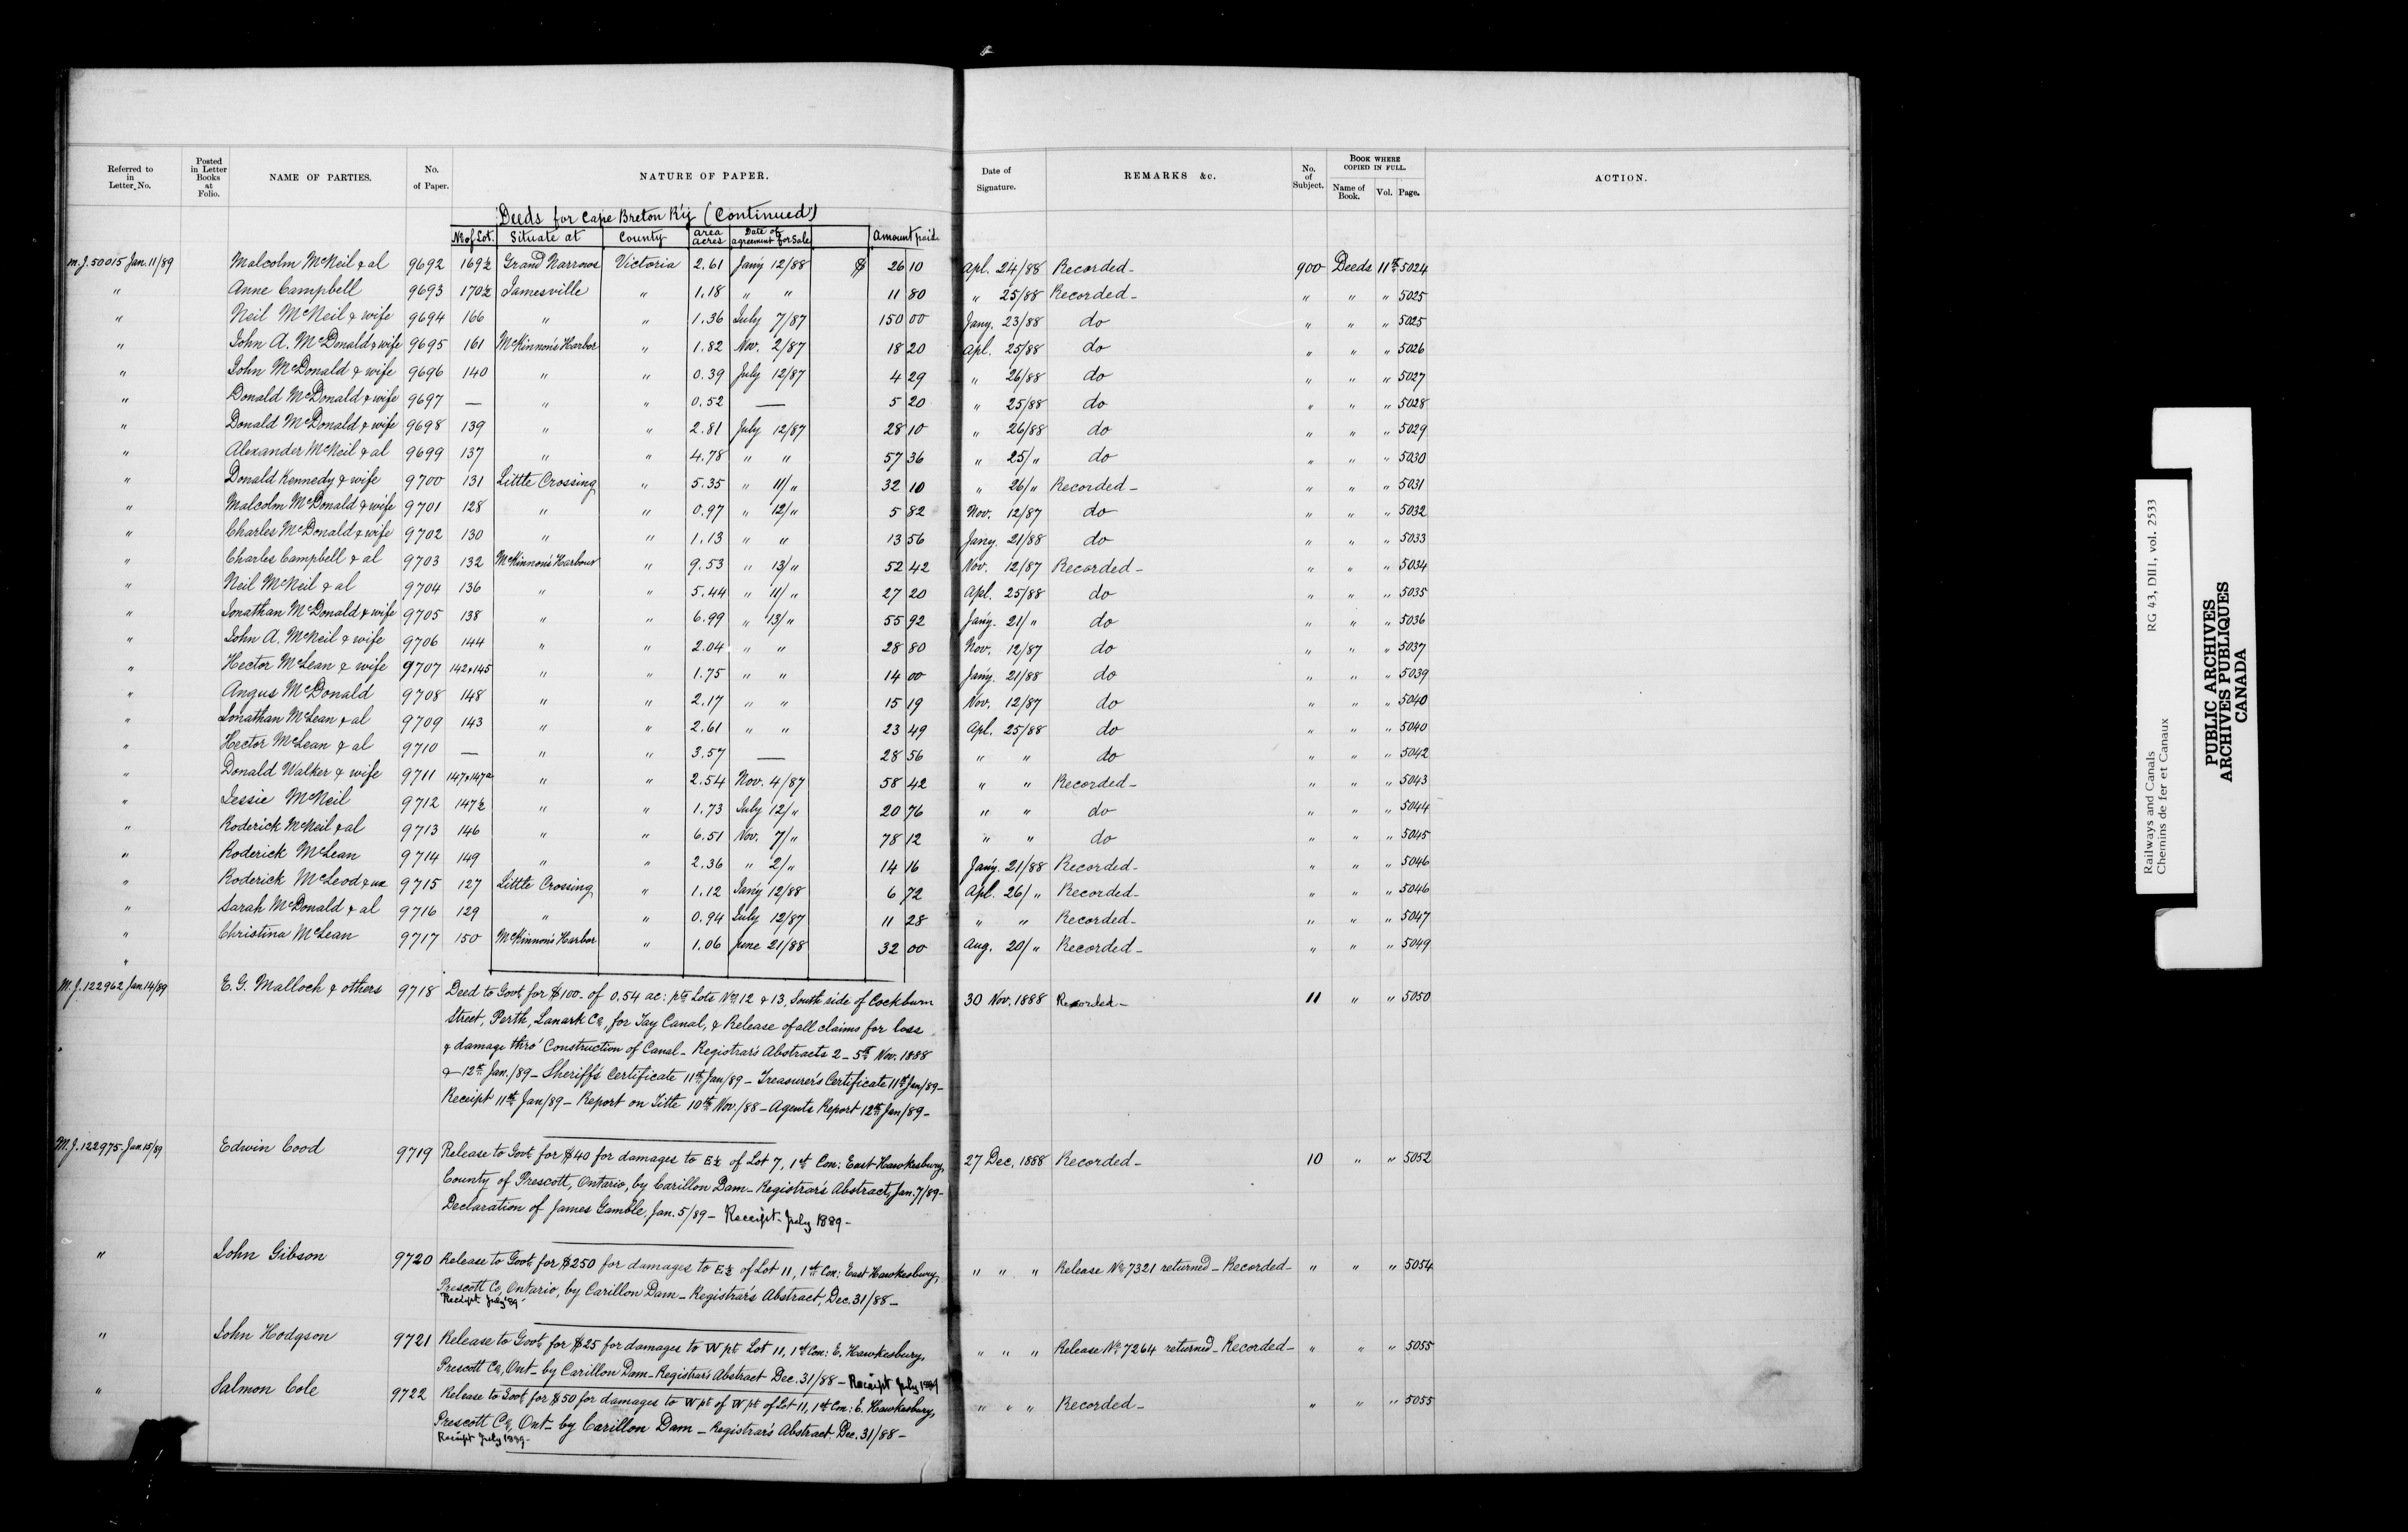 Referred to in Letter No. Posted in Letter Books at Folio. NAME OF PARTIES. No. of Paper. NATURE OF PAPER. Date of Signature. REMARKS &c. No. of Subject. BOOK WHERE COPIED IN FULL. Name of Book. Vol. Page. ACTION.
Deeds for Cape Breton R'y (Continued)
No of Lot. Situate at County area acres Date of agreement for Sale Amount paid
M.J. 50015 Jan. 11/89 Malcolm McNeil & al 9692 169½ Grand Narrows Victoria 2.61 Jany 12/88 $ 26 10 Apl. 24/88 Recorded- 900 Deeds 11th 5024
" Anne Campbell 9693 170½ Jamesville " 1.18 " " 11 80 " 25/88 Recorded- " " " 5025
" Neil McNeil & wife 9694 166 " " 1.36 July 7/87 150 00 Jany. 23/88 do " " " 5025
" John A. McDonald & wife 9695 161 McKinnon's Harbor " 1.82 Nov. 2/87 18 20 Apl. 25/88 do " " " 5026
" John McDonald & wife 9696 140 " " 0.39 July 12/87 4 29 " 26/88 do " " " 5027
" Donald McDonald & wife 9697 — " " 0.52 — 5 20 " 25/88 do " " " 5028
" Donald McDonald & wife 9698 139 " " 2.81 July 12/87 28 10 " 26/88 do " " " 5029
" Alexander McNeil & al 9699 137 " " 4.78 " " 57 36 " 25/" do " " " 5030
" Donald Kennedy & wife 9700 131 Little Crossing " 5.35 " 11/" 32 10 " 26/" Recorded- " " " 5031
" Malcolm McDonald & wife 9701 128 " " 0.97 " 12/" 5 82 Nov. 12/87 do " " " 5032
" Charles McDonald & wife 9702 130 " " 1.13 " " 13 56 Jany. 21/88 do " " " 5033
" Charles Campbell & al 9703 132 McKinnon's Harbour " 9.53 " 13/" 52 42 Nov. 12/87 Recorded- " " " 5034
" Neil McNeil & al 9704 136 " " 5.44 " 11/" 27 20 Apl. 25/88 do " " " 5035
" Jonathan McDonald & wife 9705 138 " " 6.99 " 13/" 55 92 Jany. 21/" do " " " 5036
" John A. McNeil & wife 9706 144 " " 2.04 " " 28 80 Nov. 12/87 do " " " 5037
" Hector McLean & wife 9707 142 & 145 " " 1.75 " " 14 00 Jany. 21/88 do " " " 5039
" Angus McDonald 9708 148 " " 2.17 " " 15 19 Nov. 12/87 do " " " 5040
" Jonathan McLean & al 9709 143 " " 2.61 " " 23 49 Apl. 25/88 do " " " 5040
" Hector McLean & al 9710 — " " 3.57 — 28 56 " " do " " " 5042
" Donald Walker & wife 9711 147 & 147a " " 2.54 Nov. 4/87 58 42 " " Recorded- " " " 5043
" Jessie McNeil 9712 147½ " " 1.73 July 12/" 20 76 " " do " " " 5044
" Roderick McNeil & al 9713 146 " " 6.51 Nov. 7/" 78 12 " " do " " " 5045
" Roderick McLean 9714 149 " " 2.36 " 2/" 14 16 Jany. 21/88 Recorded- " " " 5046
" Roderick McLeod & ux 9715 127 Little Crossing " 1.12 Jany 12/88 6 72 Apl. 26/" Recorded- " " " 5046
" Sarah McDonald & al 9716 129 " " 0.94 July 12/87 11 28 " " Recorded- " " " 5047
" Christina McLean 9717 150 McKinnon's Harbor " 1.06 June 21/88 32 00 Aug. 20/" Recorded- " " " 5049
"
M.J. 122962 Jan. 14/89 E. G. Malloch & others 9718 Deed to Govt for $100- of 0.54 ac: pts Lots Nos 12 & 13, South side of Cockburn 30 Nov. 1888 Recorded- 11 " " 5050
Street, Perth, Lanark Co, for Tay Canal, & Release of all claims for loss
& damage thro' Construction of Canal- Registrar's Abstracts 2 - 5th Nov. 1888
& 12th Jan./89- Sheriff's Certificate 11th Jan/89- Treasurer's Certificate 11th Jan/89-
Receipt 11th Jan/89- Report on Title 10th Nov./88- Agents Report 12th Jan/89-
M.J. 122975. Jan 15/89 Edwin Cood 9719 Release to Govt for $40 for damages to E½ of Lot 7, 1st Con: East Hawkesbury, 27 Dec. 1888 Recorded- 10 " " 5052
County of Prescott, Ontario, by Carillon Dam- Registrar's Abstract, Jan. 7/89-
Declaration of James Gamble, Jan. 5/89- Receipt- July 1889-
" John Gibson 9720 Release to Govt for $250 for damages to E½ of Lot 11, 1st Con: East Hawkesbury, " " " Release No 7321 returned- Recorded- " " " 5054
Prescott Co, Ontario, by Carillon Dam- Registrar's Abstract, Dec. 31/88-
Receipt July '89-
" John Hodgson 9721 Release to Govt for $25 for damages to W pt Lot 11, 1st Con: E. Hawkesbury, " " " Release No 7264 returned- Recorded- " " " 5055
Prescott Co, Ont- by Carillon Dam- Registrar's Abstract Dec. 31/88- Receipt July 1889
" Salmon Cole 9722 Release to Govt for $50 for damages to W pt of W pt of Lot 11, 1st Con: E. Hawkesbury, " " " Recorded- " " " 5055
Prescott Co, Ont- by Carillon Dam- Registrar's Abstract. Dec. 31/88-
Receipt July 1889-
Railways and Canals RG 43, DIII, vol. 2533
Chemins de fer et Canaux
PUBLIC ARCHIVES
ARCHIVES PUBLIQUES
CANADA